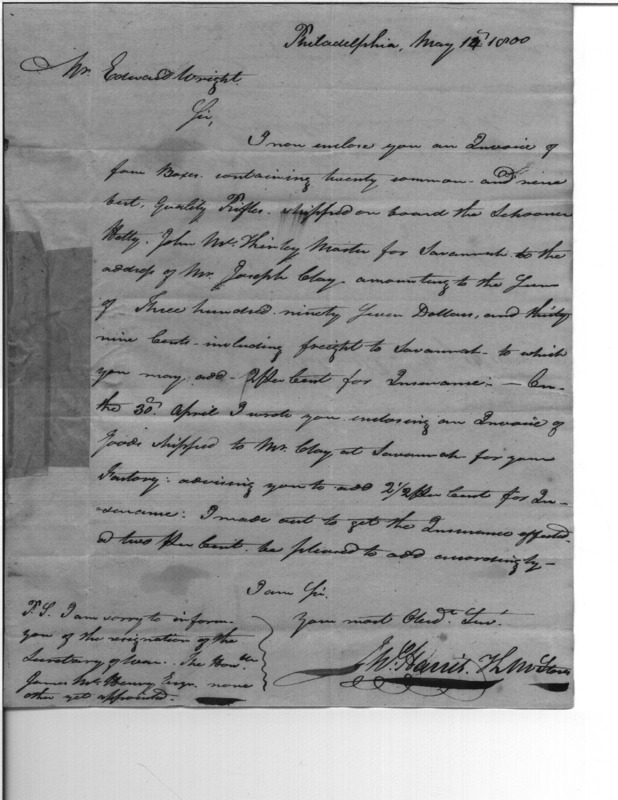 Philadelphia, May 12th 1800
Mr. Edward Wright.
Sir,
I now enclose you an Invoice of
four Boxes containing twenty common and nine
best Quality Rifles shipped on board the Schooner
Hetty. John Mc Master for Savannah to the
address of Mr. Joseph Clay amounting to the Sum
of Three hundred ninety Seven Dollars, and thirty
nine Cents - including freight to Savannah - to which
you may add - 2 ⅌ Cent for Insurance: - On
the 30th April I wrote you enclosing an Invoice of
Goods shipped to Mr. Clay at Savannah for your
Factory: advising you to add 2 1/2 ⅌ Cent for In-
surance: I made out to get the Insurance effected
at two ⅌ Cent. be pleased to add accordingly -
I am Sir.
Your most Obedt. Servt.
Jno. Harris. K M Stores
P.S. I am sorry to inform
you of the resignation of the
Secretary of War. The Honble
James Mc Henry Esqr. none
other yet appointed.